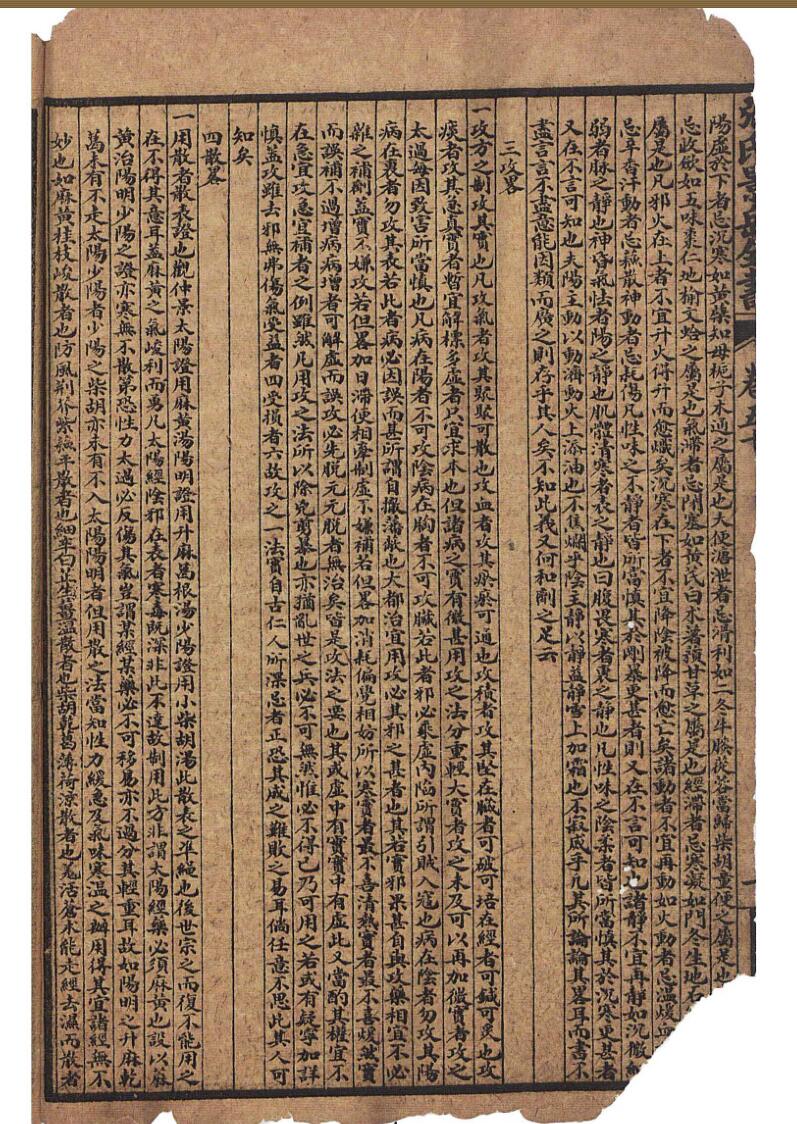 陽虛於下者忌沉寒如黃蘗知母梔子木通之屬是也大便溏泄者忌滑利如二冬牛膝蓯蓉當歸柴胡童便之屬是也
忌收斂如五味棗仁地榆文蛤之屬是也氣滯者忌閉塞如黃芪白朮薯蕷甘草之屬是也經滯者忌寒凝如門冬生地石
屬是也凡邪火在上者不宜升火得升而愈熾矣沉寒在下者不宜降陰被降而愈亡矣諸動者不宜再動如火動者忌溫煖血
忌辛香汗動者忌蘓散神動者忌耗傷凡性味之不靜者皆所當慎其於剛暴更甚者則又在不言可知也諸靜者不宜再靜如沉微細
弱者脉之靜也神昏氣怯者陽之靜也肌體清寒者表之靜也口腹畏寒者裏之靜也凡性味之陰柔者皆所當慎其於沉寒更甚者
又在不言可知也夫陽主動以動濟動火上添油也不焦爛乎陰主靜以靜益靜雪上加霜也不寂滅乎凡其所論論其畧耳而書不
盡言言不盡意能因類而廣之則存乎其人矣不知此義又何和劑之足云
三攻畧
一攻方之制攻其實也凡攻氣者攻其聚聚可散也攻血者攻其瘀瘀可通也攻積者攻其堅在臟者可破可培在經者可鍼可灸也攻
痰者攻其急真實者暫宜解標多虛者只宜求本也但諸病之實有微甚用攻之法分重輕大實者攻之未及可以再加微實者攻之
太過每因致害所當慎也凡病在陽者不可攻陰病在胸者不可攻臟若此者邪必乘虛內陷所謂引賊入寇也病在陰者勿攻其陽
病在裏者勿攻其表若此者病必因誤而甚所謂自撤藩蔽也大都治宜用攻必其邪之甚者也其若實邪果甚自與攻藥相宜不必
雜之補劑蓋實不嫌攻若但畧加甘滯便相牽制虛不嫌補若但畧加消耗偏覺相妨所以寒實者最不喜清熱實者最不喜煖然實
而誤補不過增病病增者可解虛而誤攻必先脫元元脫者無治矣皆是攻法之要也其或虛中有實實中有虛此又當酌其權宜不
在急宜攻急宜補者之例雖然凡用攻之法所以除兇剪暴也亦猶亂世之兵必不可無然惟必不得已乃可用之若或有疑寧加詳
慎蓋攻雖去邪無弗傷氣受益者四受損者六故攻之一法實自古仁人所深忌者正恐其成之難敗之易耳倘任意不思此其人可
知矣
四散畧
一用散者散表證也觀仲景太陽證用麻黃湯陽明證用升麻葛根湯少陽證用小柴胡湯此散表之準繩也後世宗之而復不能用之
在不得其意耳蓋麻黃之氣峻利而勇凡太陽經陰邪在表者寒毒既深非此不達故制用此方非謂太陽經藥必須麻黃也設以麻
黃治陽明少陽之證亦寒無不散第恐性力太過必反傷其氣豈謂某經某藥必不可移易亦不過分其輕重耳故如陽明之升麻乾
葛未有不走太陽少陽者少陽之柴胡亦未有不入太陽陽明者但用散之法當知性力緩急及氣味寒溫之辨用得其宜諸經無不
妙也如麻黃桂枝峻散者也防風荊芥紫蘓平散者也細辛白芷生薑溫散者也柴胡乾葛薄荷涼散者也羌活蒼朮能走經去濕而散者